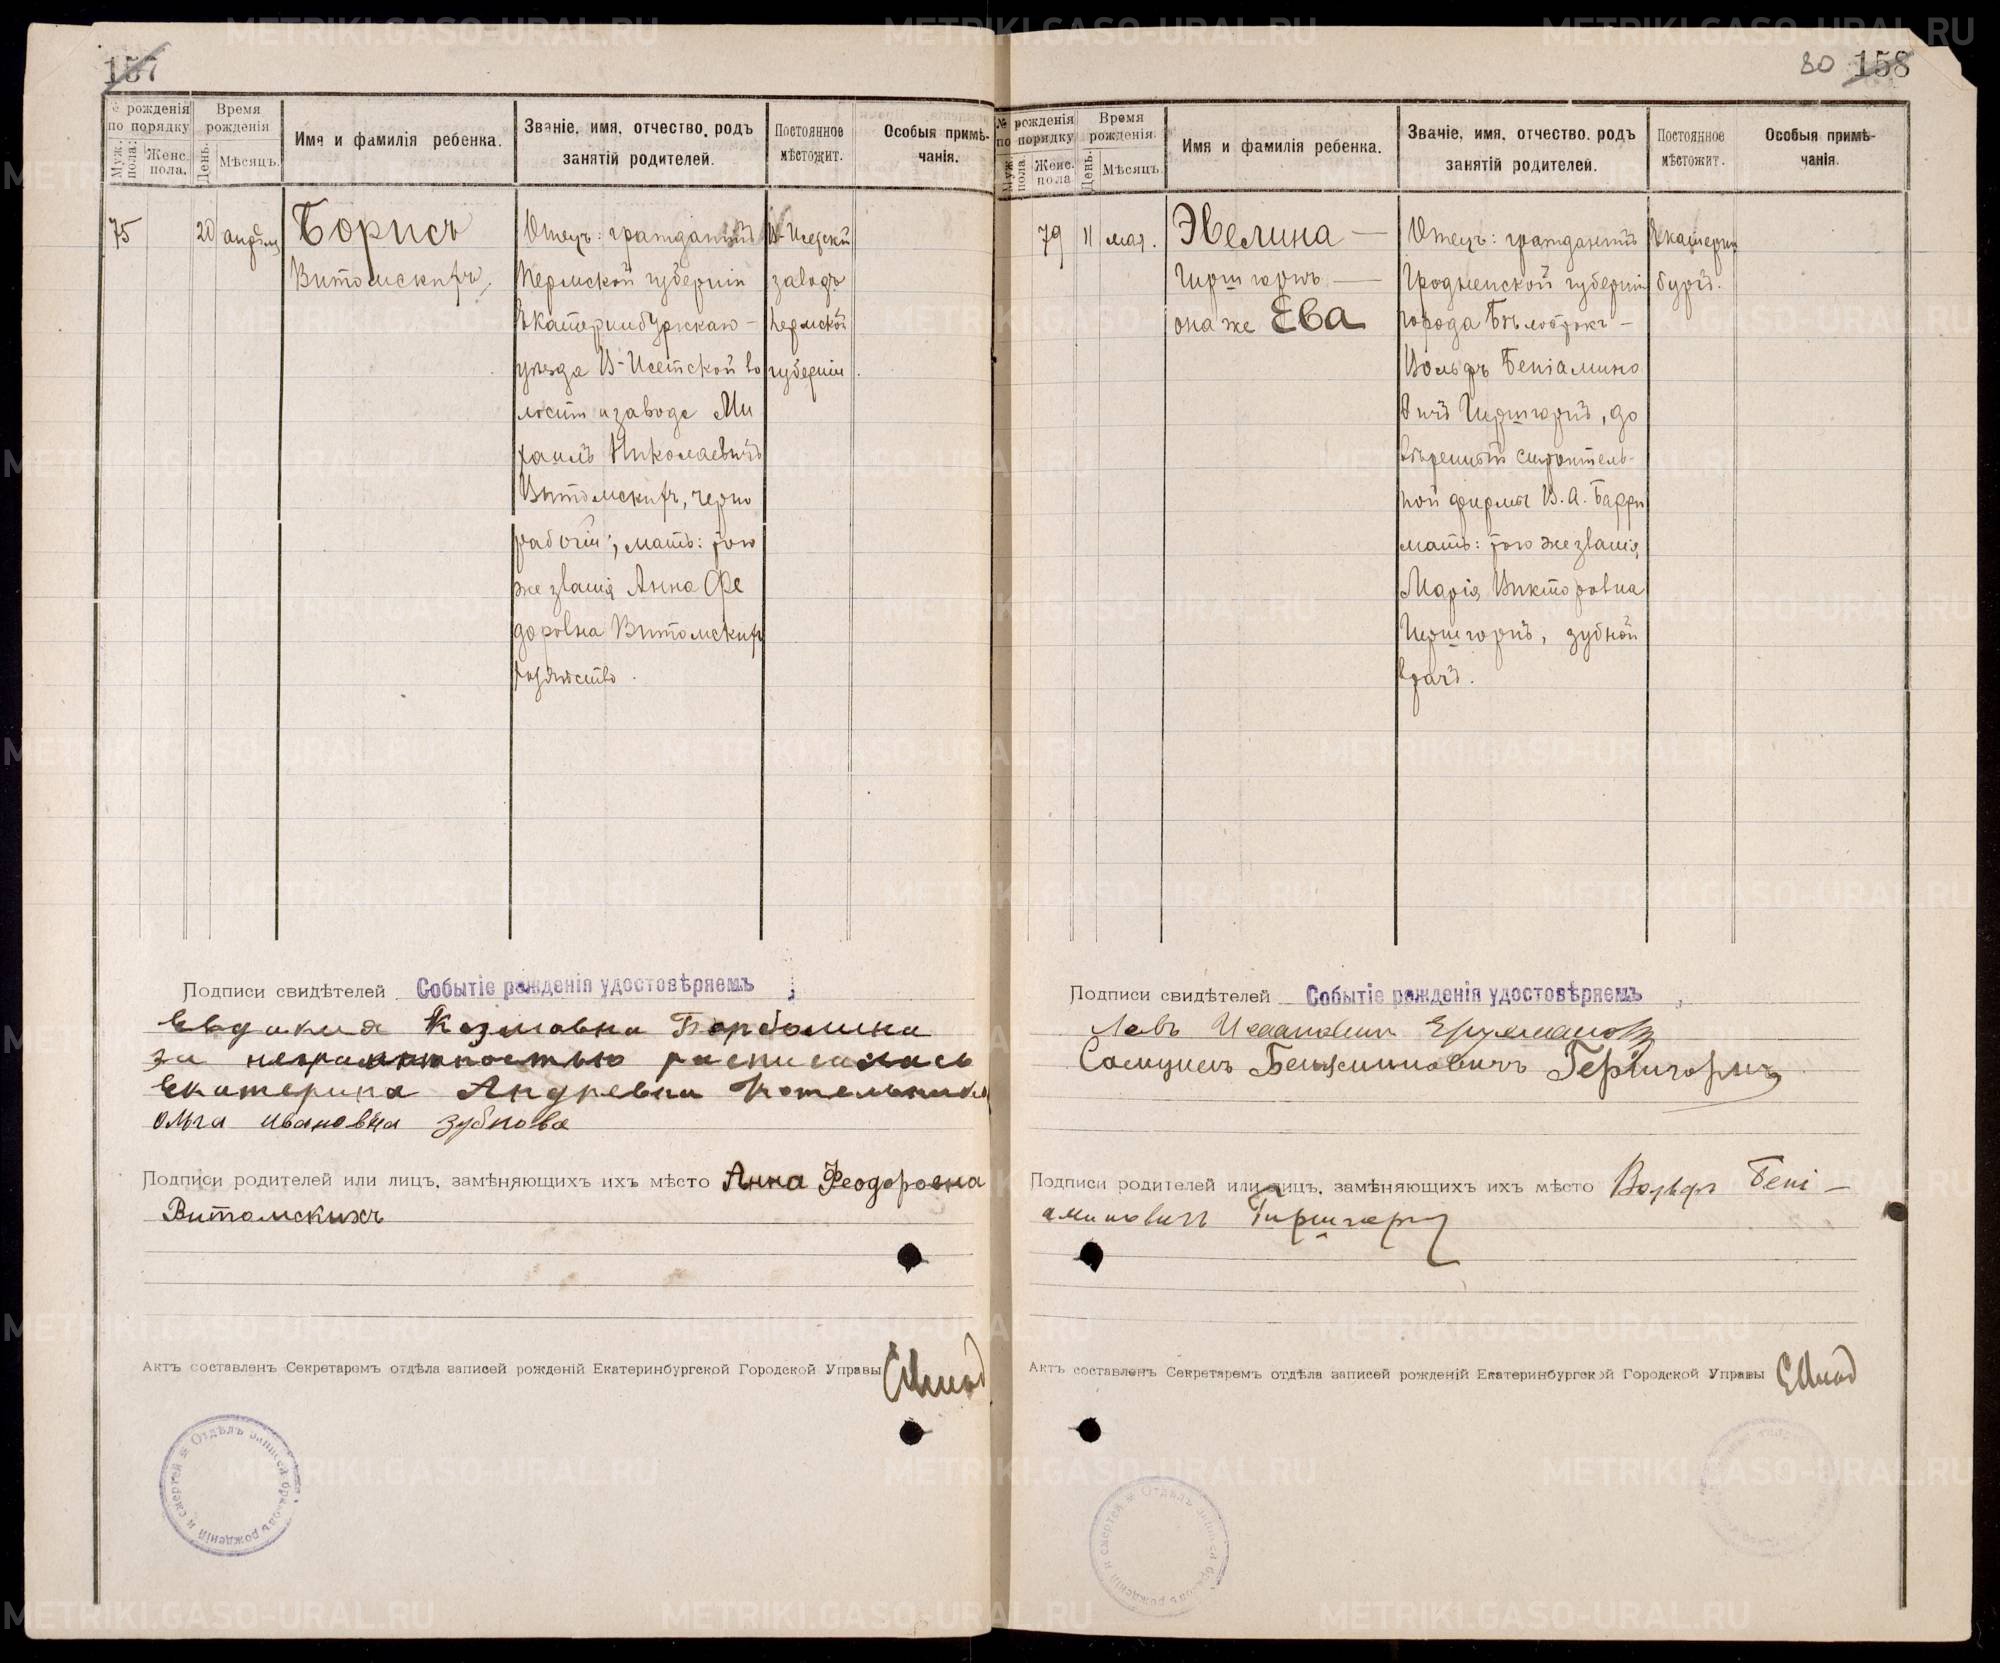 157
№ рожденія по порядку
Муж. пола.
Женс. пола.
Время рожденія
День.
Мѣсяцъ.
Имя и фамилія ребенка.
Званіе, имя, отчество, родъ
занятій родителей.
Постоянное
мѣстожит.
Особыя примѣ-
чанія.
75
20
апрѣля
Борисъ
Витомскихъ
Отецъ: гражданинъ
Пермской губерніи
Екатеринбургскаго
уѣзда В-Исетской во
лости и завода Ми
хаилъ Николаевичъ
Витомскихъ, черно
рабочій; мать: того
же званія Анна Фе
доровна Витомскихъ
хозяйство.
В-Исетскій
заводъ
Пермской
губерніи.
Подписи свидѣтелей Событіе рожденія удостовѣряемъ
Евдокия Козмовна
за неграмотностью росписалась
Екатерина Андревна Котельникова
Ольга Ивановна Зубкова
Подписи родителей или лицъ, замѣняющихъ ихъ мѣсто Анна Феодоровна
Витомскихъ
Актъ составленъ Секретаремъ отдѣла записей рожденій Екатеринбургской Городской Управы
Отдѣлъ записей браковъ рожденій и смертей
80 158
№ рожденія по порядку
Муж. пола
Женс. пола
Время рожденія.
День.
Мѣсяцъ.
Имя и фамилія ребенка.
Званіе, имя, отчество, родъ
занятій родителей.
Постоянное
мѣстожит.
Особыя примѣ-
чанія.
79
11
мая.
Эвелина —
Гиршгорнъ —
она же Ева
Отецъ: гражданинъ
Гродненской губерніи
города Бѣлостокъ —
Вольфъ Беніамино
вичъ Гиршгорнъ, до
вѣренный строитель-
ной фирмы В. А. Барри
мать: того же званія,
Марія Викторовна
Гиршгорнъ, зубной
врачъ.
Екатерин
бургъ.
Подписи свидѣтелей Событіе рожденія удостовѣряемъ
Левъ
Самуилъ Беньяминовичъ Гершгорнъ
Подписи родителей или лицъ, замѣняющихъ ихъ мѣсто Вольфъ Бені —
аминовичъ Гиршгорнъ
Актъ составленъ Секретаремъ отдѣла записей рожденій Екатеринбургской Городской Управы
Отдѣлъ записей браковъ рожденій и смертей
METRIKI.GASO-URAL.RU